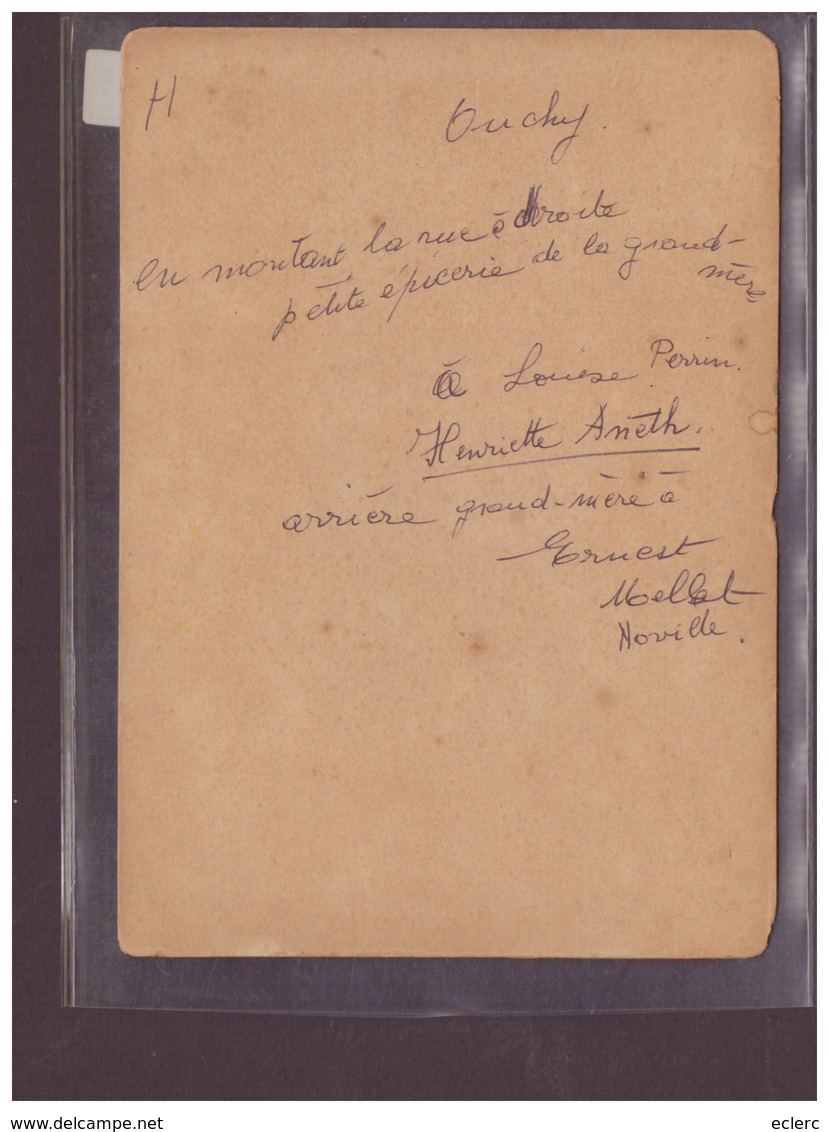 H
Ouchy.
En montant la rue à droite
petite épicerie de la grand-
mère
à Louise Perrin.
Henriette Aneth.
arrière grand-mère à
Ernest
Mellet
Noville.
delcampe.net
eclerc